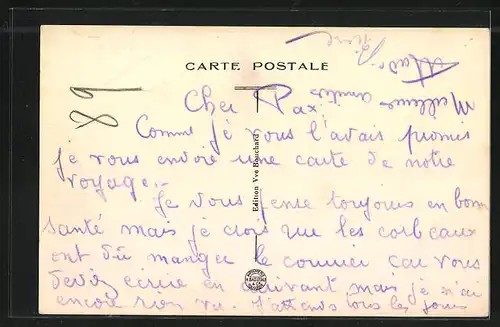 CARTE POSTALE
89
Cher Pax,
Comme je vous l'avais promis
je vous envoie une carte de notre
voyage.
Je vous pense toujours en bonne
santé mais je crois que les corbeaux
ont dû manger le courrier car vous
deviez écrire en arrivant mais je n'ai
encore rien vu J'attends tous les jours
Meilleures amitiés
Pierre
Edition Vve Bouchard